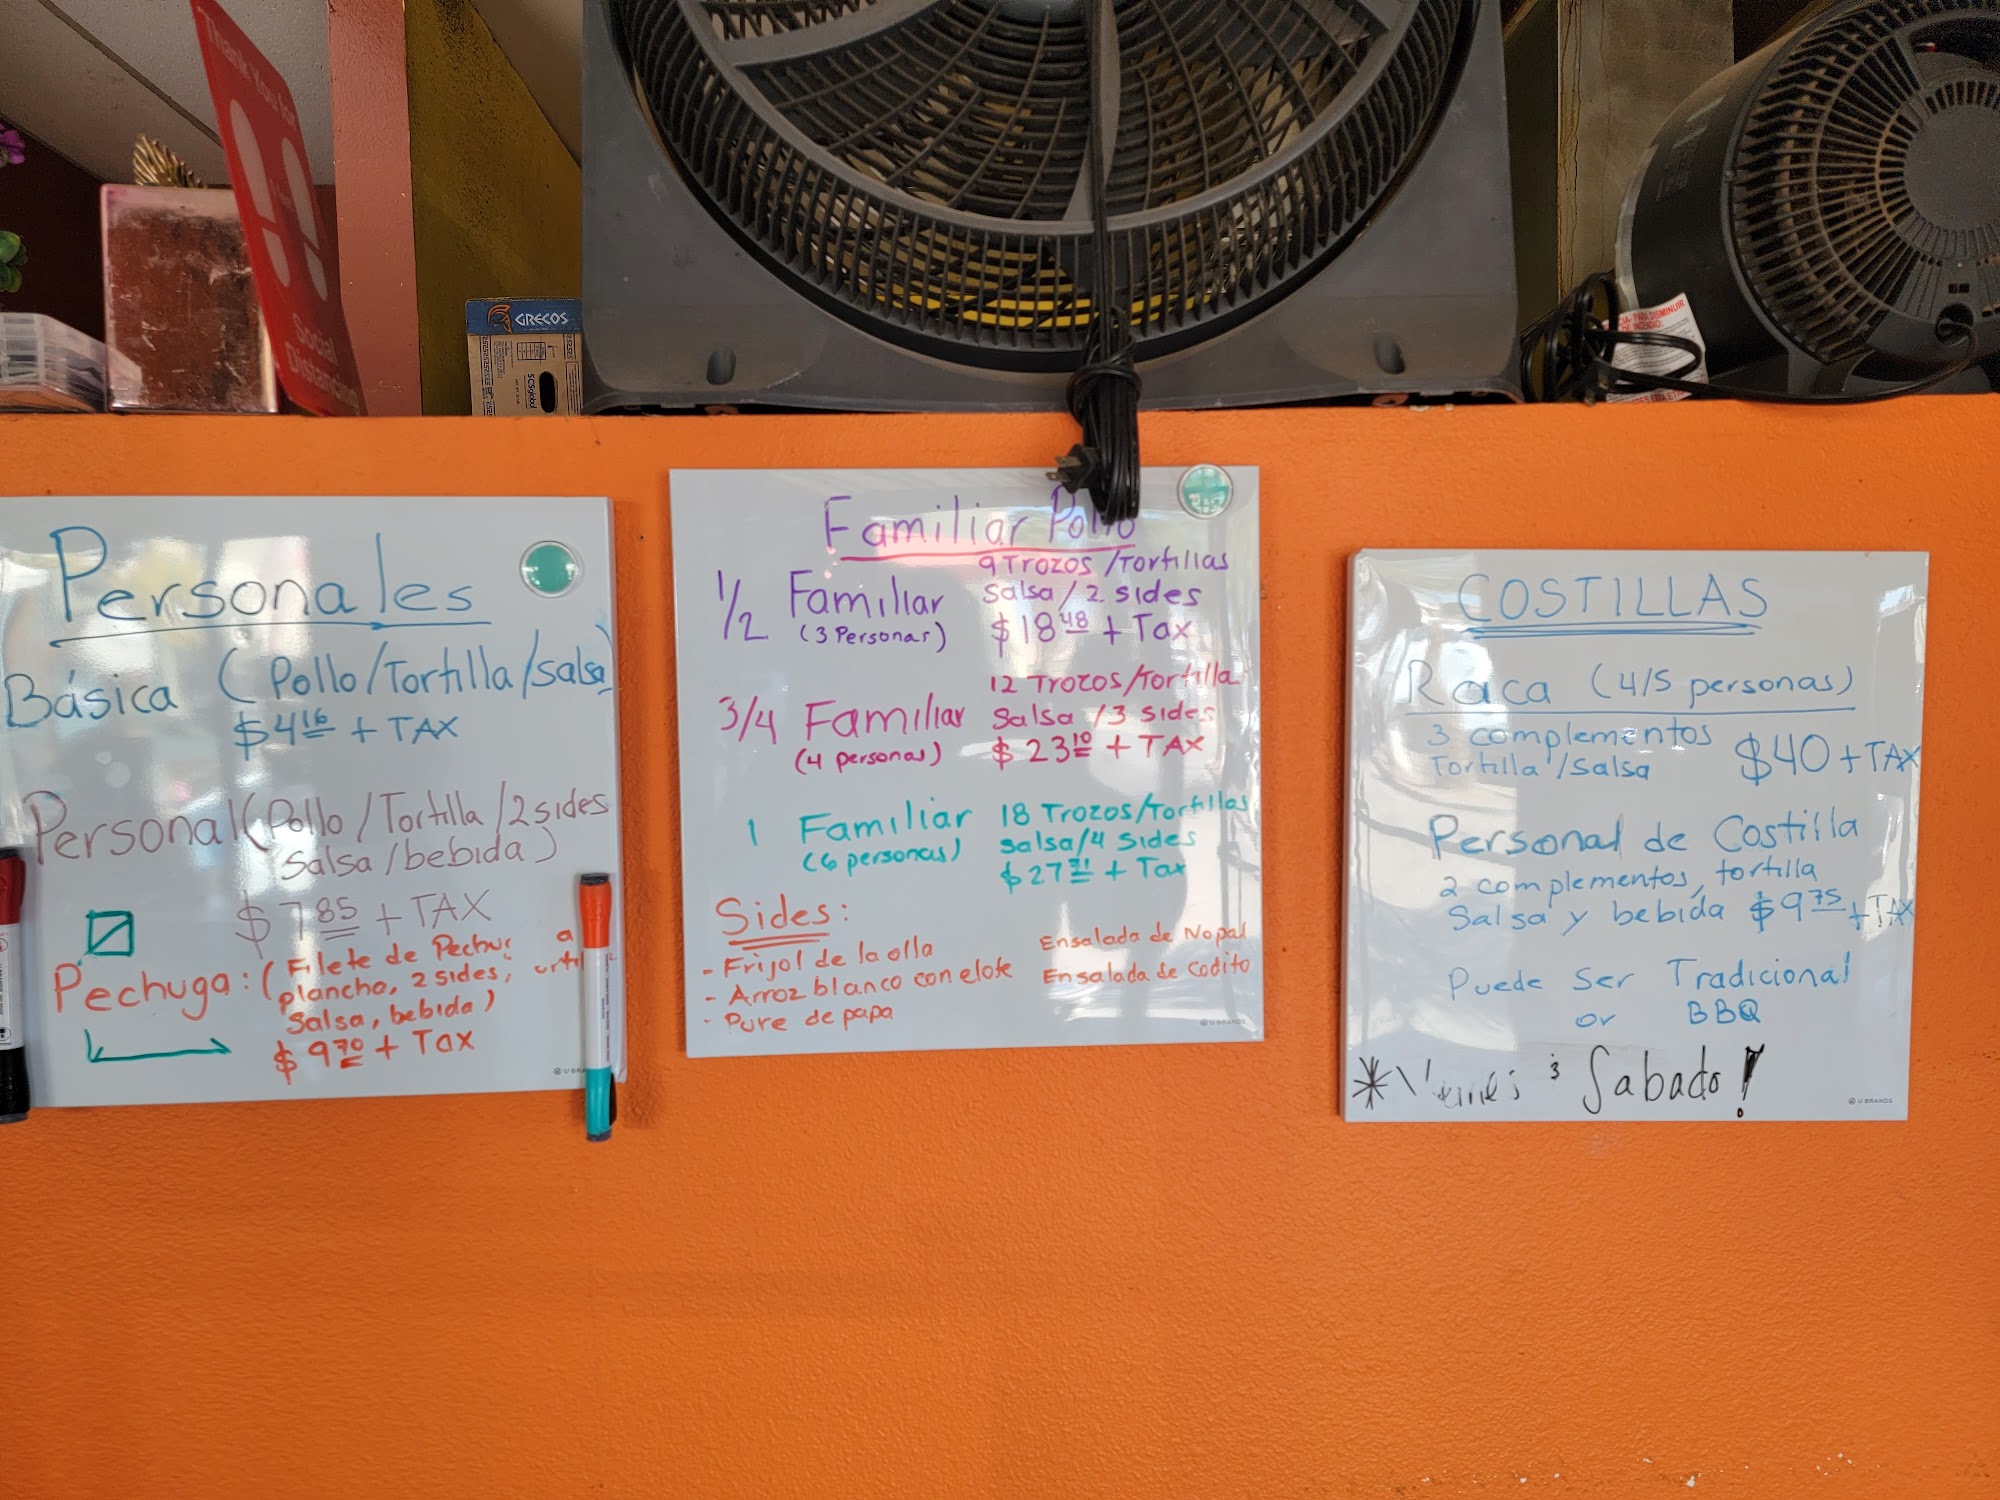 Thank You for
Social
Distancing
GRECOS
SCSglobal
PARA DISMINUIR
Personales
Básica (Pollo/Tortilla/salsa)
$4.16 + TAX
Personal (Pollo/Tortilla/2 sides
salsa/bebida)
$7.85 + TAX
Pechuga: (Filete de
plancha, 2 sides,
Salsa, bebida)
$9.70 + Tax
Familiar Pollo
1/2 Familiar
(3 Personas)
9 Trozos /Tortillas
Salsa/2 sides
$18.48 + Tax
3/4 Familiar
(4 personas)
12 Trozos/Tortilla
Salsa /3 sides
$23.10 + TAX
1 Familiar
(6 personas)
18 Trozos/Tortillas
salsa/4 sides
$27.71 + Tax
Sides:
- Frijol de la olla
- Arroz blanco con elote
- Pure de papa
Ensalada de Nopal
Ensalada de Codito
U BRANDS
COSTILLAS
Raca (4/5 personas)
3 complementos
Tortilla/Salsa
$40 + TAX
Personal de Costilla
2 complementos, tortilla
Salsa y bebida $9.75 + TAX
Puede Ser Tradicional
or BBQ
Sabado!
U BRANDS